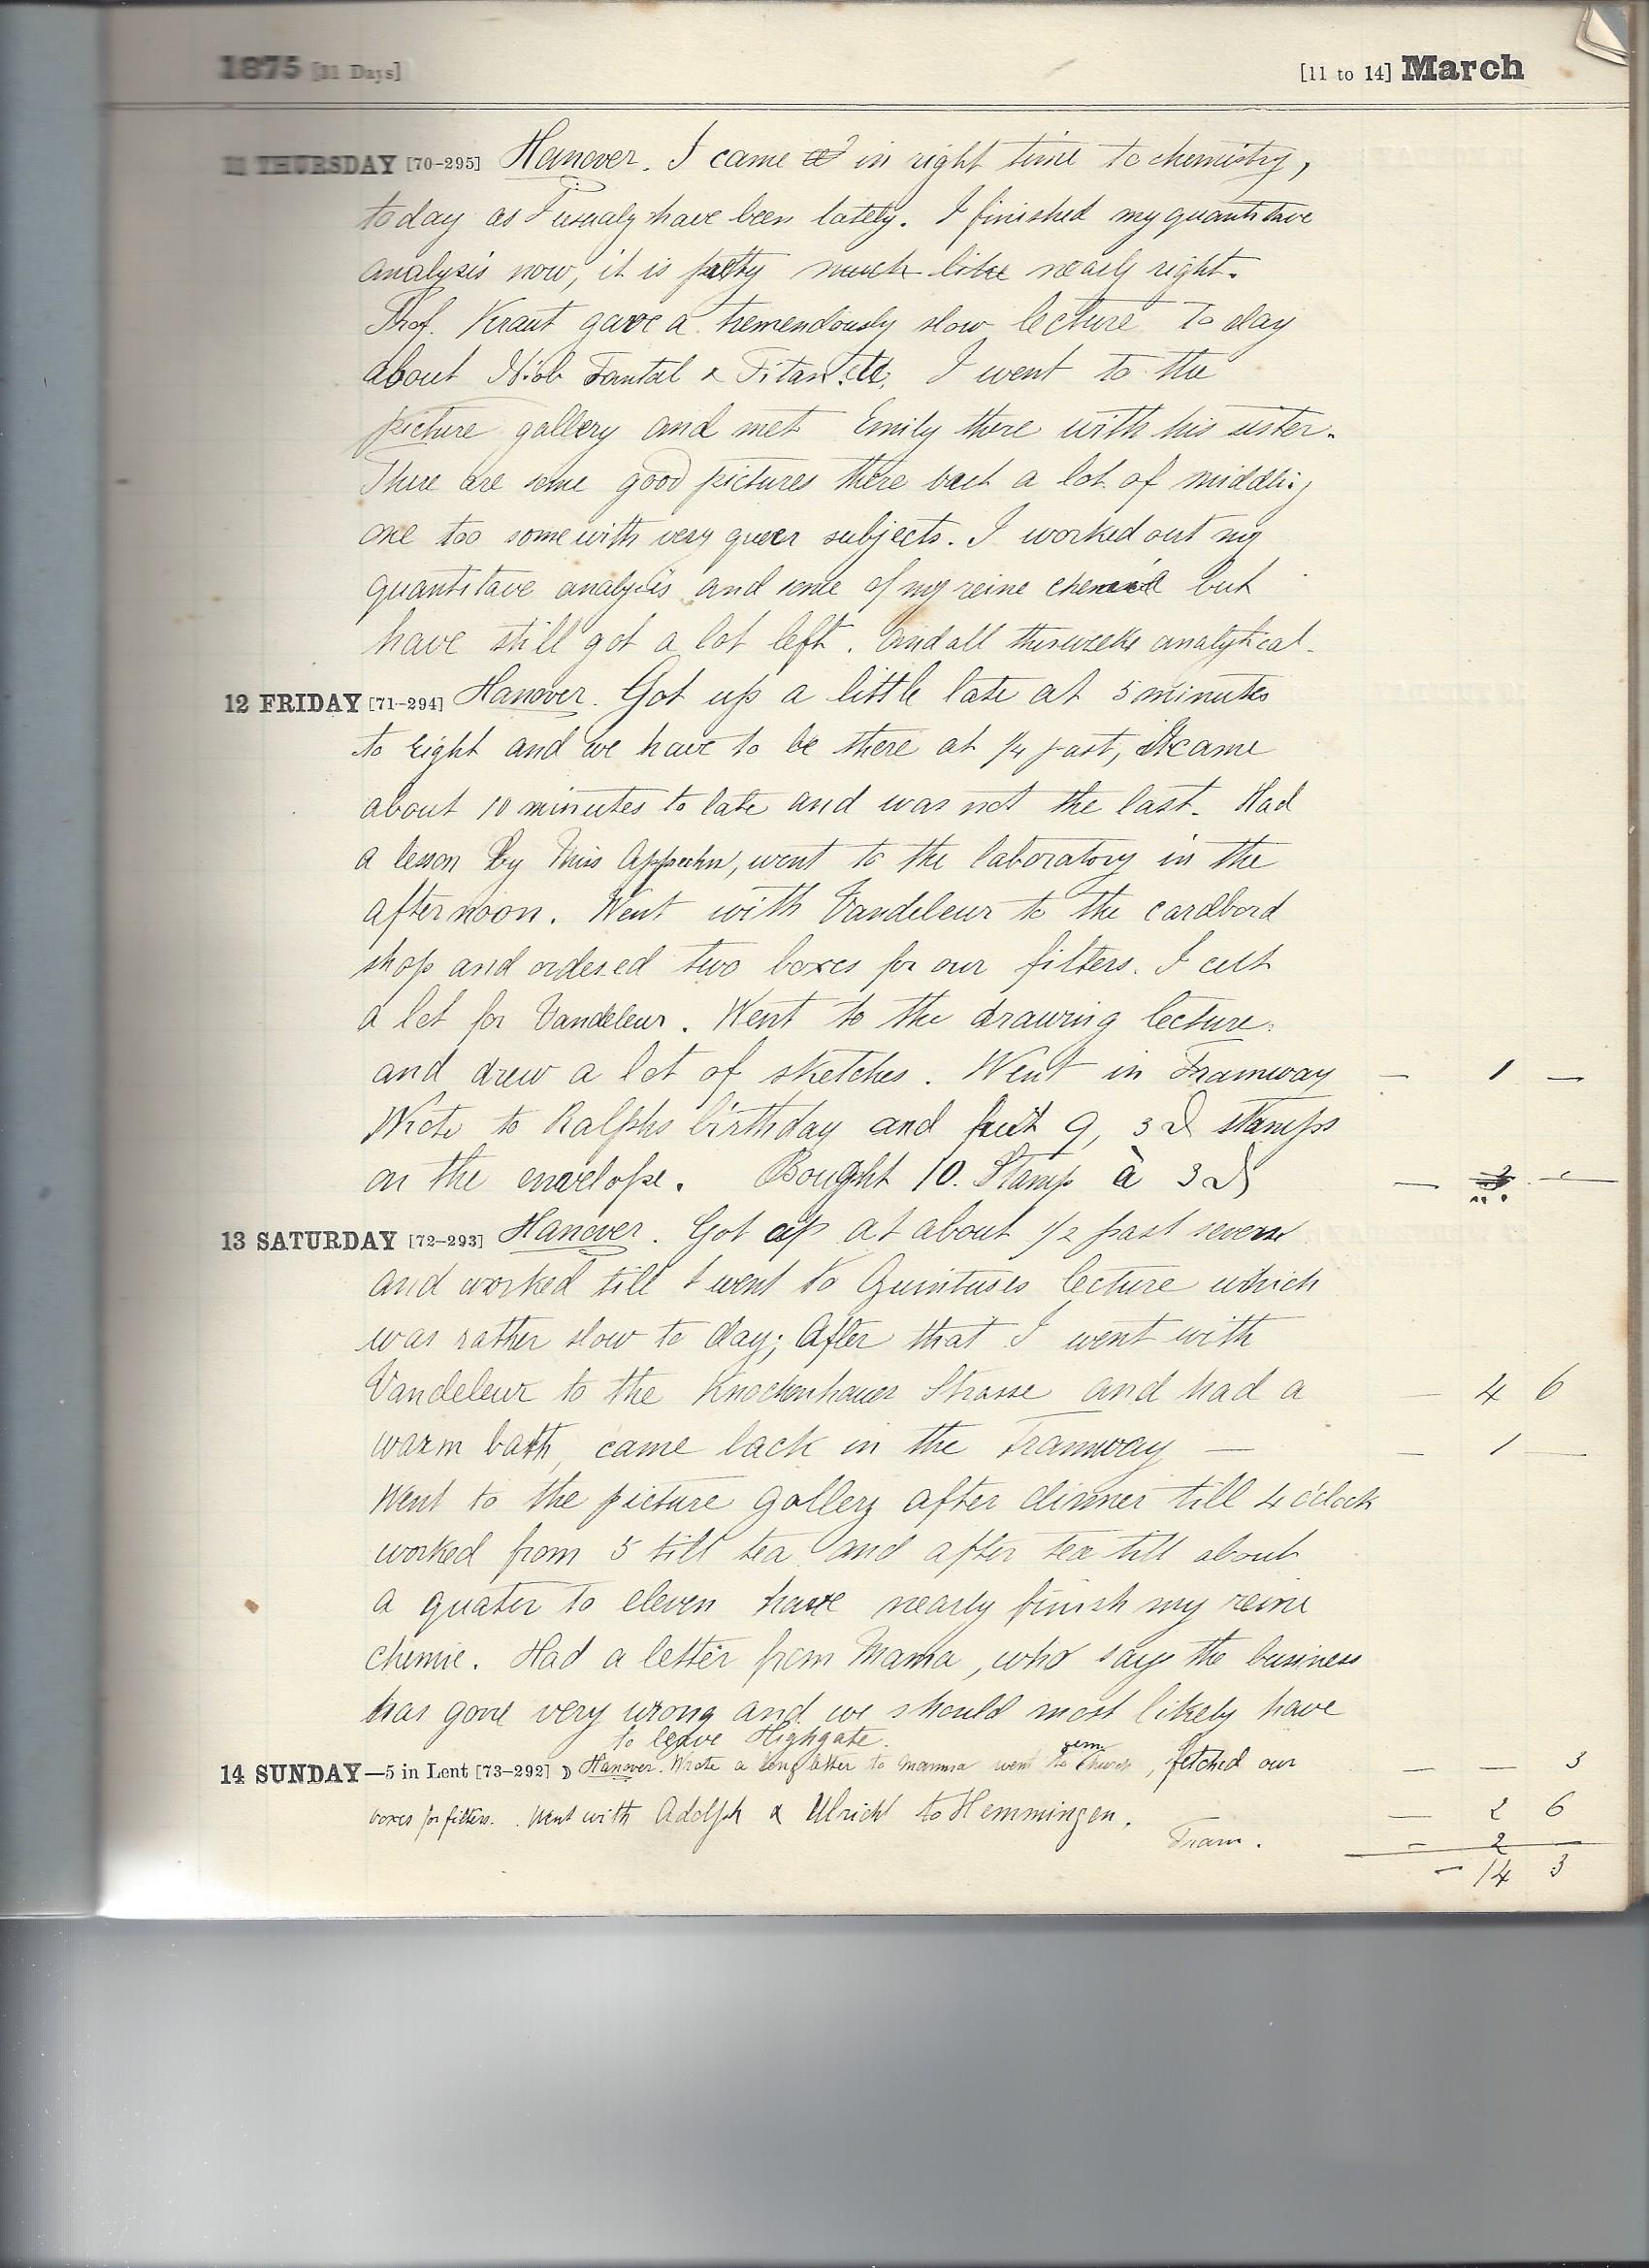 1875 [31 Days] [11 to 14] March
11 THURSDAY [70-295] Hanover. I came in right time to chemistry,
today as I usualy have been lately. I finished my quantitave
analysis now, it is pretty much like nearly right.
Prof. Kraut gave a tremendously slow lecture to day
about Niob Tantal & Titan. etc. I went to the
picture gallery and met Emily there with his sister.
There are some good pictures there but a lot of middling
one too some with very queer subjects. I worked out my
quantitave analysis and some of my reine chemie but
have still got a lot left. and all this weeks analytical.
12 FRIDAY [71-294] Hanover. Got up a little late at 5 minutes
to eight and we have to be there at 1/4 past, I came
about 10 minutes to late and was not the last. Had
a lesson by Miss went to the laboratory in the
afternoon. Went with Vandeleur to the cardbord
shop and ordered two boxes for our filters. I cut
a lot for Vandeleur. Went to the drawing lecture.
and drew a lot of sketches. Went in Tramway — 1 —
Wrote to Ralphs birthday and put 9, 3 stamps
on the envelope. Bought 10. Stamp à 3 — 3 —
13 SATURDAY [72-293] Hanover. Got up at about 1/2 past seven
and worked till I went to Quintuses lecture which
was rather slow to day; After that I went with
Vandeleur to the Knochenhauer Strasse and had a — 4 6
warm bath, came back in the Tramway — — 1 —
Went to the picture gallery after dinner till 4 o'clock
worked from 5 till tea and after tea till about
a quater to eleven have nearly finish my reine
chemie. Had a letter from Mama, who says the business
has gone very wrong and we should most likely have
to leave Highgate.
14 SUNDAY—5 in Lent [73-292] Hanover. Wrote a long letter to Mamma went to church, fetched our — — 3
boxes for filters. Went with Adolph & Ulricht to Hemmingen. — 2 6
Tram. – 2
– 14 3